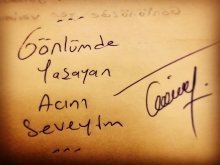 Gönlümde
Yaşayan
Acını
Seveyim